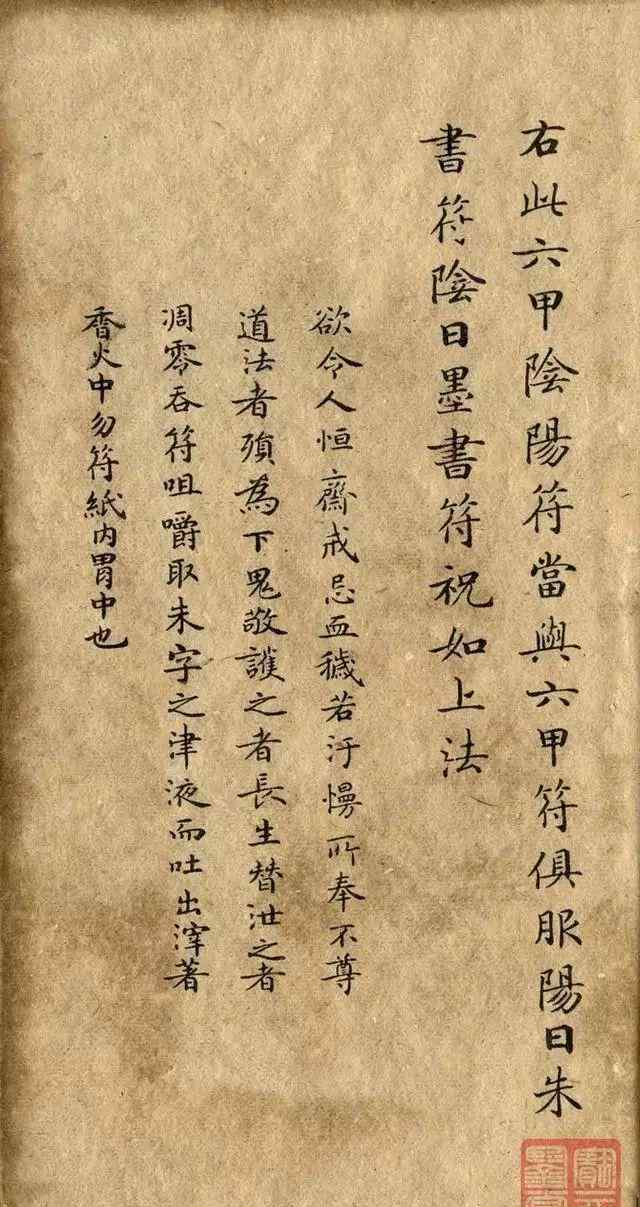 右此六甲陰陽符當與六甲符俱服陽日朱
書符陰日墨書符祝如上法
欲令人恒齋戒忌血穢若汙慢所奉不尊
道法者殞為下鬼敬護之者長生替泄之者
凋零吞符咀嚼取朱字之津液而吐出滓著
香火中勿符紙內胃中也